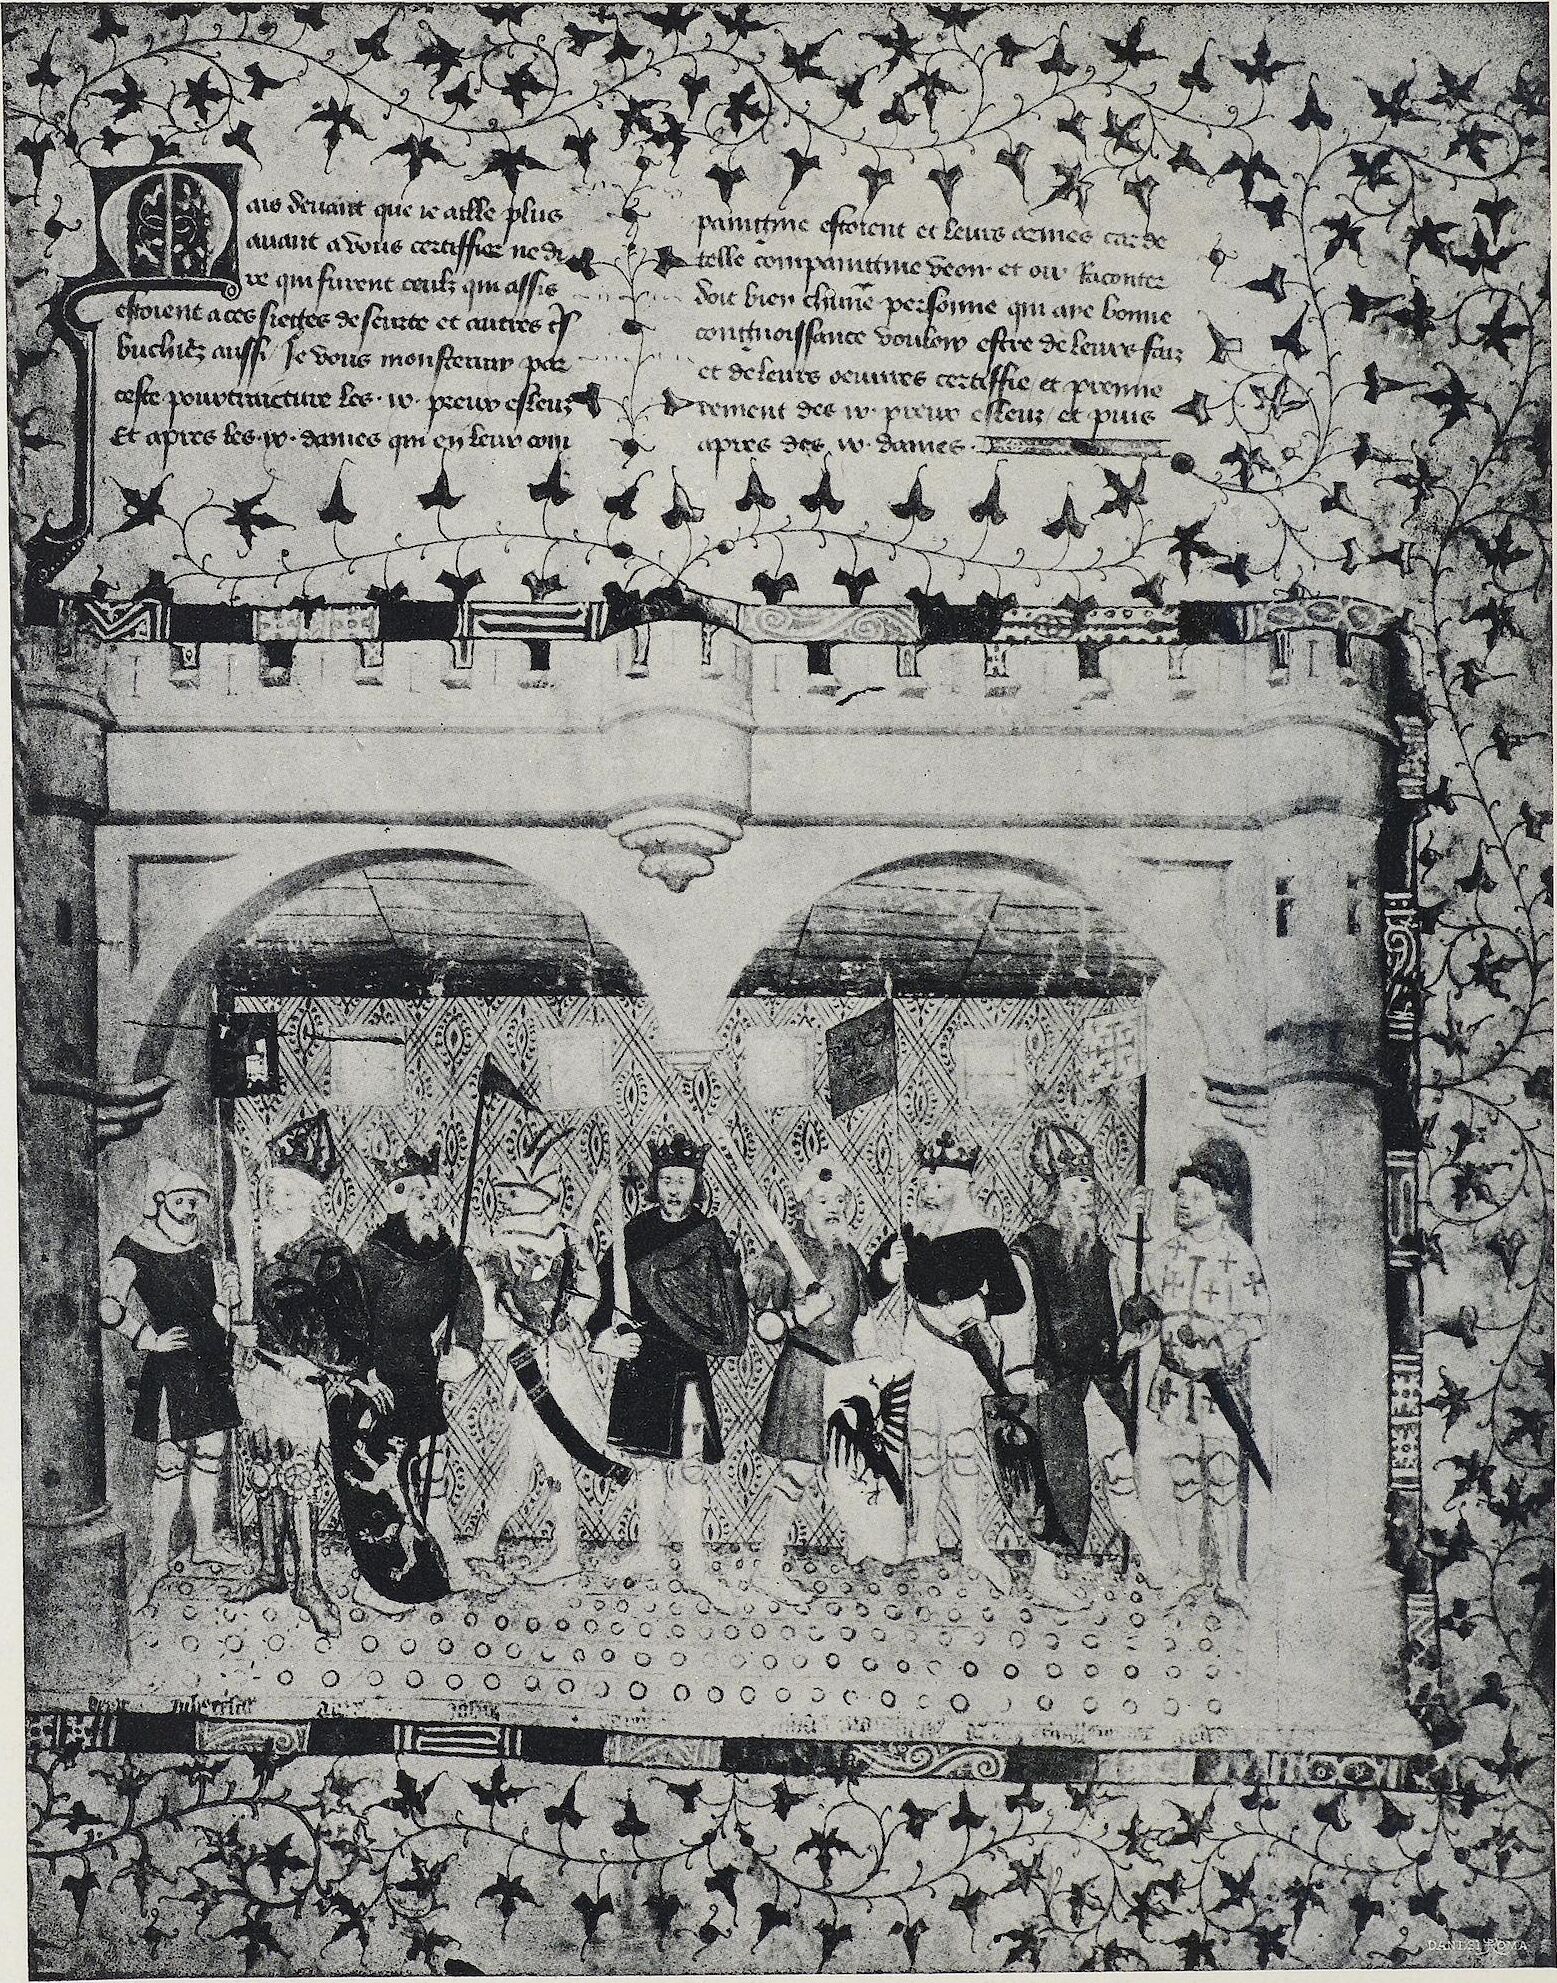 Mais devant que ie aille plus
avant a vous certiffier ne di
re qui furent ceulz qui assis
estoient a ces sietes de seurte et autres
aussi Je vous monsterray par
ceste pourtraicture les .ix. preux esleuz
Et apres les .ix. dames qui en leur com
paingnie estoient et leurs armes car de
telle compaingnie veoir et oir Raconter
doit bien chūne personne qui aye bonne
congnoissance vouloir estre de leurs faiz
et de leurs oeuvres certiffie et premie
rement des .ix. preux esleuz et puis
apres des .ix. dames
DANESI ROMA